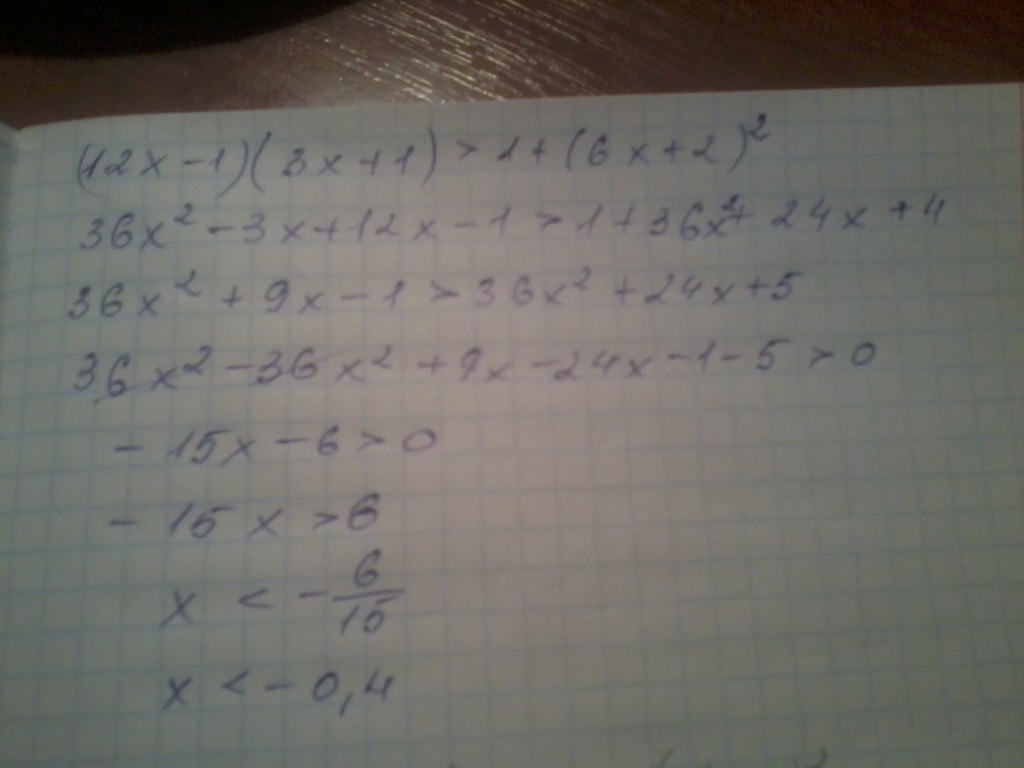 (12x-1)(3x+1)>1+(6x+2)²
36x²-3x+12x-1>1+36x²+24x+4
36x²+9x-1>36x²+24x+5
36x²-36x²+9x-24x-1-5>0
-15x-6>0
-15x>6
x<-6/15
x<-0,4